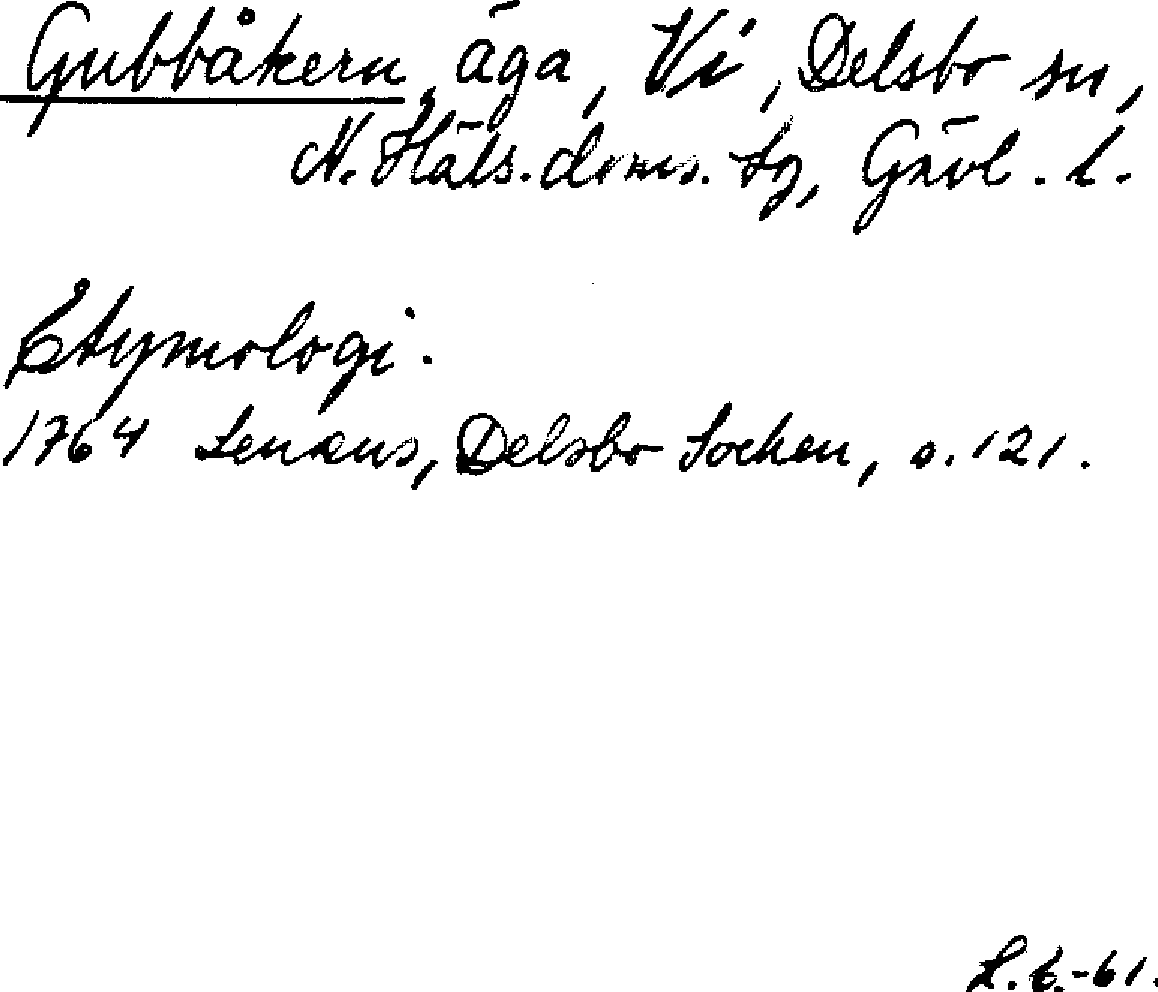 Gubbåkern, äga, Vi, Delsbo sn,
N. Häls. doms. sg, Gävl. l.
Etymologi.
1764 Lenæus, Delsbo Socken, s. 121.
L.E.-61.